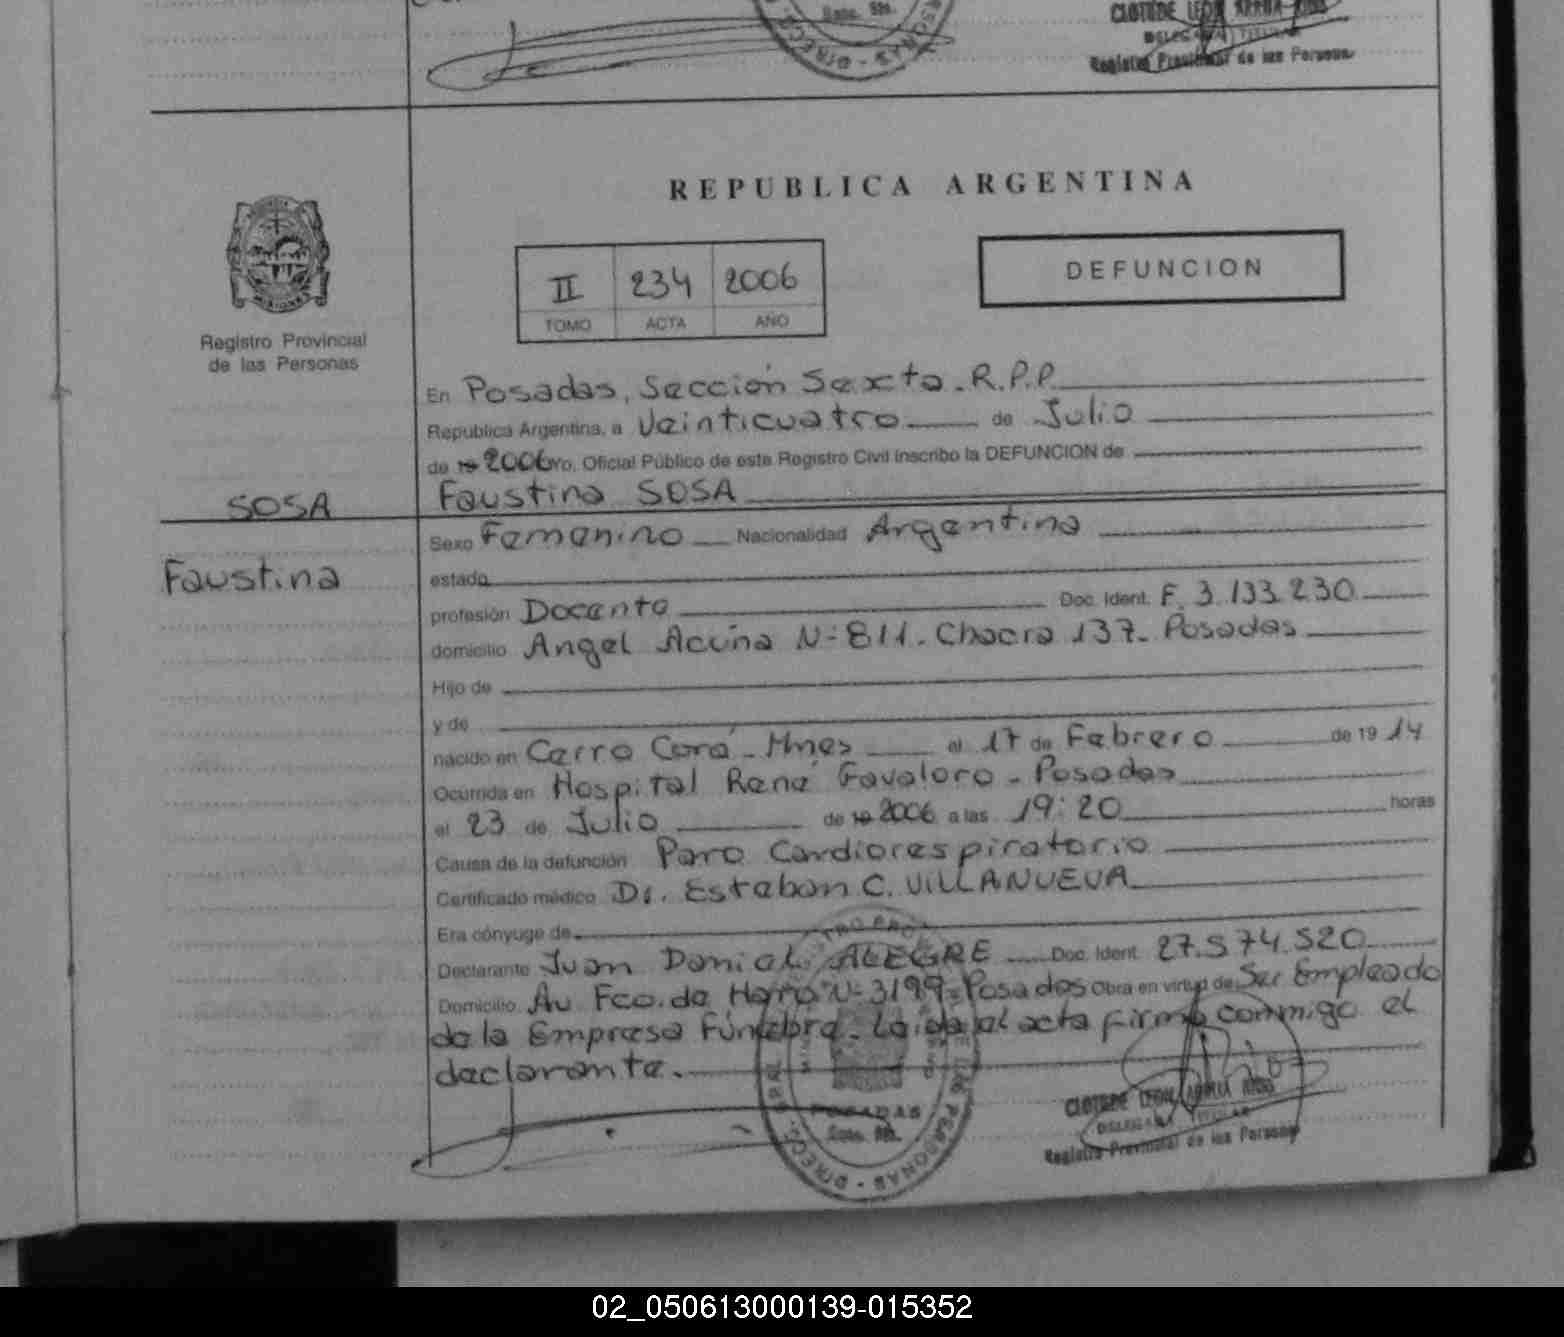 CLOTILDE LEON
Registro Provincial de las Personas
DIRECC
REPUBLICA ARGENTINA
II 234 2006
TOMO ACTA AÑO
DEFUNCION
MISIONES
Registro Provincial
de las Personas
En Posadas, Sección Sexta. R.P.P.
República Argentina, a Veinticuatro de Julio
de 19 2006 Yo, Oficial Público de este Registro Civil inscribo la DEFUNCION de
SOSA Faustina SOSA
Sexo Femenino Nacionalidad Argentina
Faustina
estado
profesión Docente Doc. Ident. F. 3.133.230
domicilio Angel Acuña N° 811. Chacra 137. Posadas
Hijo de
y de
nacido en Cerro Corá - Mnes el 17 de Febrero de 19 14
Ocurrida en Hospital René Favaloro - Posadas
el 23 de Julio de 19 2006 a las 19:20 horas
Causa de la defunción Paro Cardiorespiratorio
Certificado médico Dr. Esteban C. VILLANUEVA
Era cónyuge de
Declarante Juan Daniel ALEGRE Doc. Ident. 27.574.520
Domicilio Av. Fco. de Haro N° 3199 - Posadas Obra en virtud de Ser Empleado
de la Empresa Fúnebre. Leída el acta firma conmigo el
declarante.
POSADAS
CLOTILDE LEON
DELEGADA TITULAR
Registro Provincial de las Personas
02_050613000139-015352